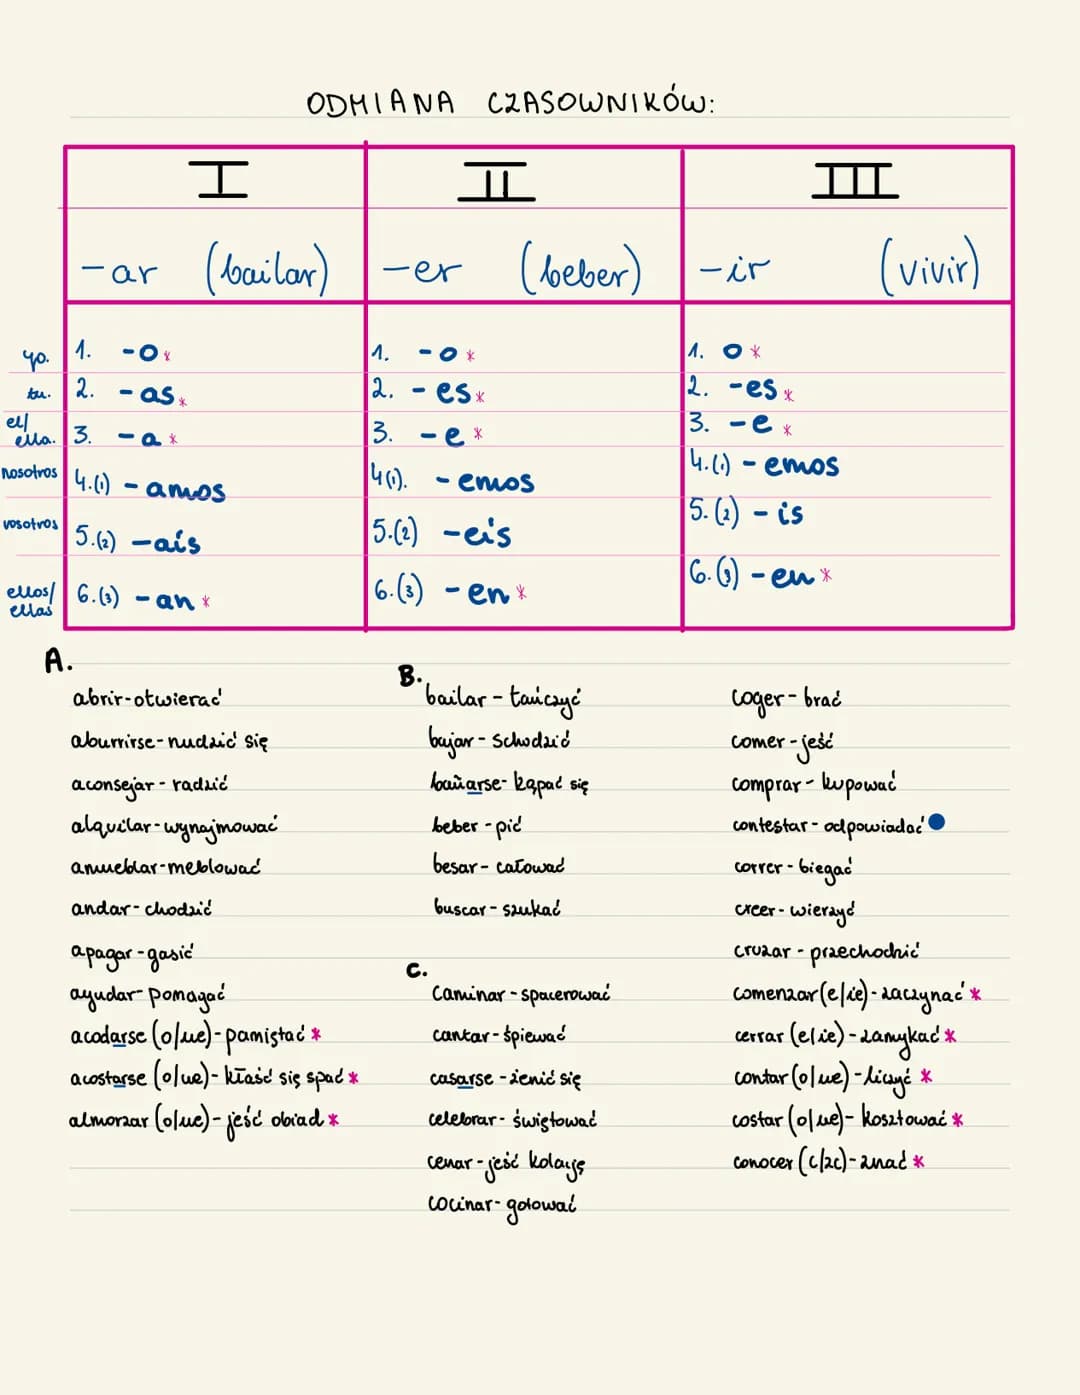 ODMIANA CZASOWNIKÓW:
I II III
-ar (bailar) -er (beber) -ir (vivir)
yo. 1. -o* 1. -o* 1. o*
tu. 2. -as* 2. -es* 2. -es*
el/ella. 3. -a* 3. -e* 3. -e*
nosotros 4.(1) -amos 4(1). -emos 4.(1) -emos
vosotros 5.(2) -aís 5.(2) -eís 5.(2) -ís
ellos/ellas 6.(3) -an* 6.(3) -en* 6.(3) -en*
A.
abrir-otwierać
aburrirse-nudzić się
aconsejar-radzić
alquilar-wynajmować
amueblar-meblować
andar-chodzić
apagar-gasić
ayudar-pomagać
acodarse (o/ue)-pamiętać *
acostarse (o/ue)-kłaść się spać *
almorzar (o/ue)-jeść obiad *
B.
bailar-tańczyć
bajar-schodzić
bañarse-kąpać się
beber-pić
besar-całować
buscar-szukać
C.
caminar-spacerować
cantar-śpiewać
casarse-żenić się
celebrar-świętować
cenar-jeść kolację
cocinar-gotować
coger-brać
comer-jeść
comprar-kupować
contestar-odpowiadać
correr-biegać
creer-wierzyć
cruzar-przechodzić
comenzar (e/ie)-zaczynać *
cerrar (e/ie)-zamykać *
contar (o/ue)-liczyć *
costar (o/ue)-kosztować *
conocer (c/zc)-znać *